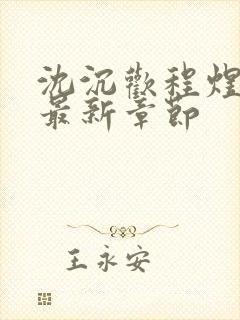 沈沉歡程煌
最新章節
王永安